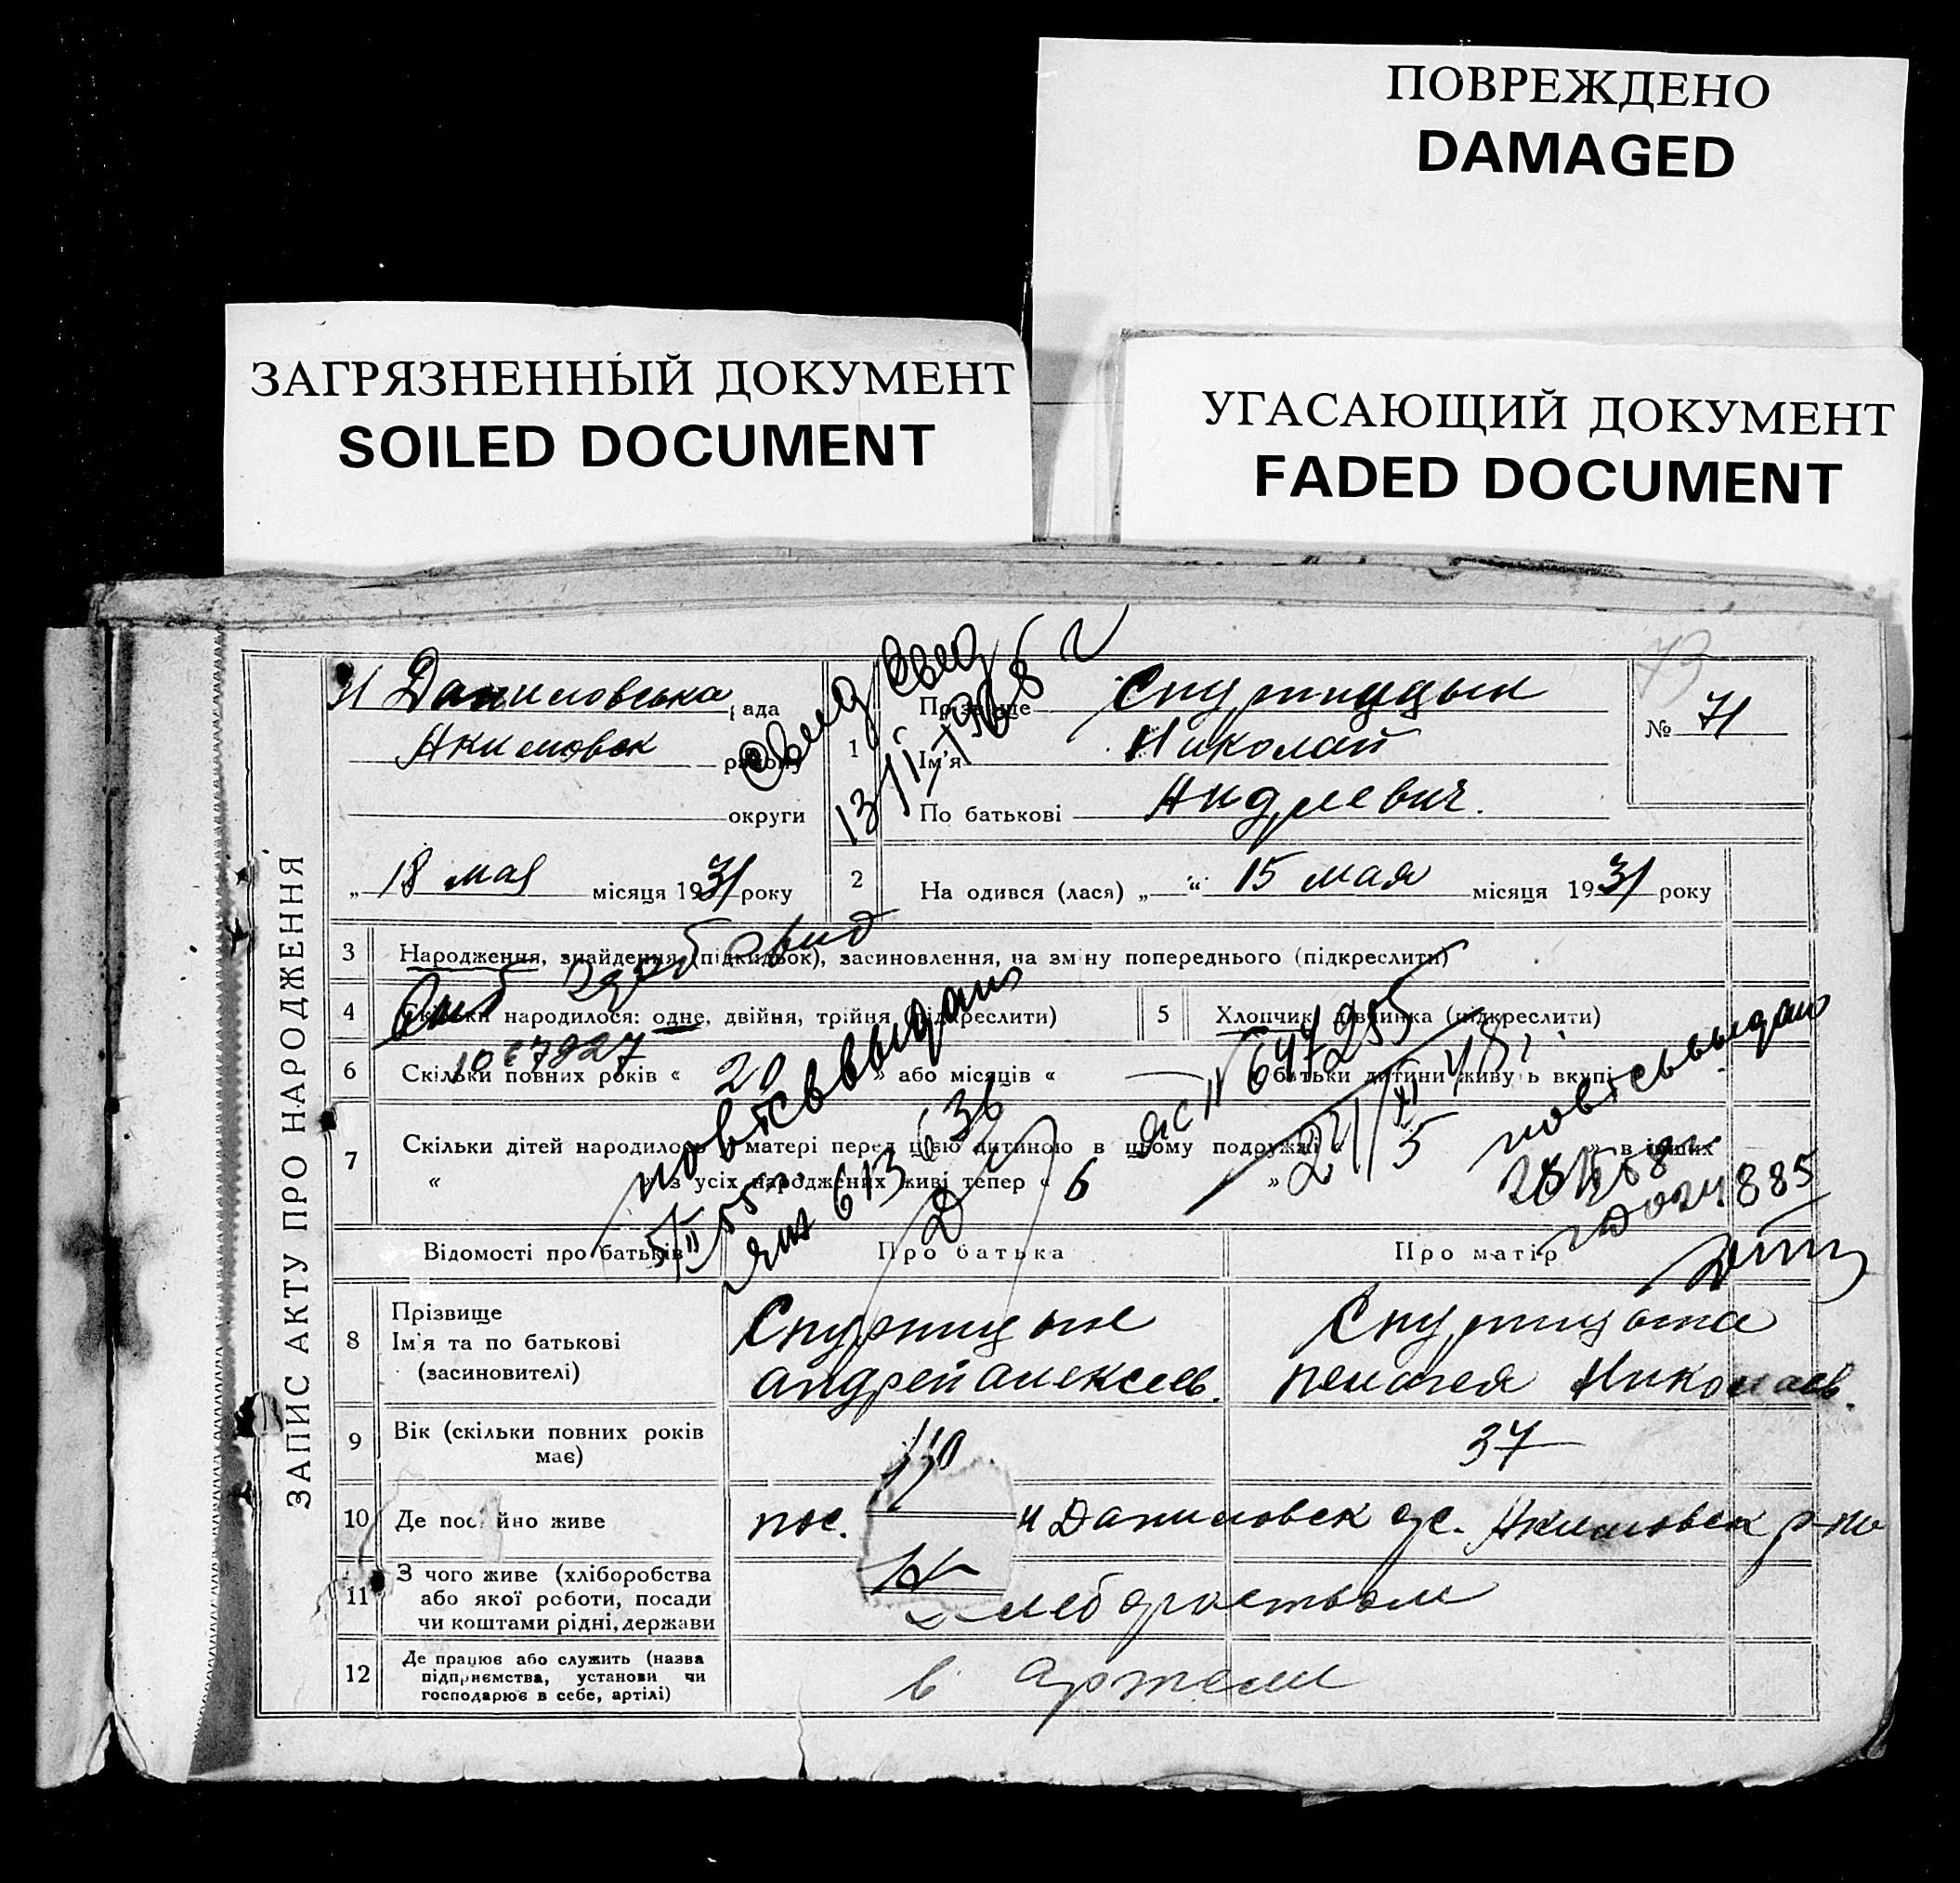 ПОВРЕЖДЕНО
DAMAGED
ЗАГРЯЗНЕННЫЙ ДОКУМЕНТ
SOILED DOCUMENT
УГАСАЮЩИЙ ДОКУМЕНТ
FADED DOCUMENT
ЗАПИС АКТУ ПРО НАРОДЖЕННЯ
Н Даниловська рада
Акимовск району
округи
„ 18 мая місяця 1931 року
13/II-1968 г
1 Прізвище
Ім'я Николай
По батькові Андреевич.
73
№ 71
2 На одився (лася) „ “ 15 мая місяця 1931 року
3 Народження, знайдення (підкидьок), засиновлення, на зміну попереднього (підкреслити)
4 Скільки народилося: одне, двійня, трійня (підкреслити)
5 Хлопчик, дівчинка (підкреслити)
6 Скільки повних років « 20 » або місяців « батьки дитини живу ь вкупі
7 Скільки дітей народилось у матері перед цією дитиною в цьому подружжі « 5 » в інших
« » з усіх народжених живі тепер « 6 »
повт св выдано
613636
647295
повт св выдано
Відомості про батьків
Про батька
Про матір
8 Прізвище
Ім'я та по батькові
(засиновителі)
Андрей Алексеев.
Пелагея Николаев.
9 Вік (скільки повних років
має)
37
10 Де пос ійно живе
пос. Н Даниловск с/с. Акимовск р-на
11 З чого живе (хліборобства
або якої роботи, посади
чи коштами рідні, держави
12 Де працює або служить (назва
підприємства, установи чи
господарює в себе, артілі)
в артели